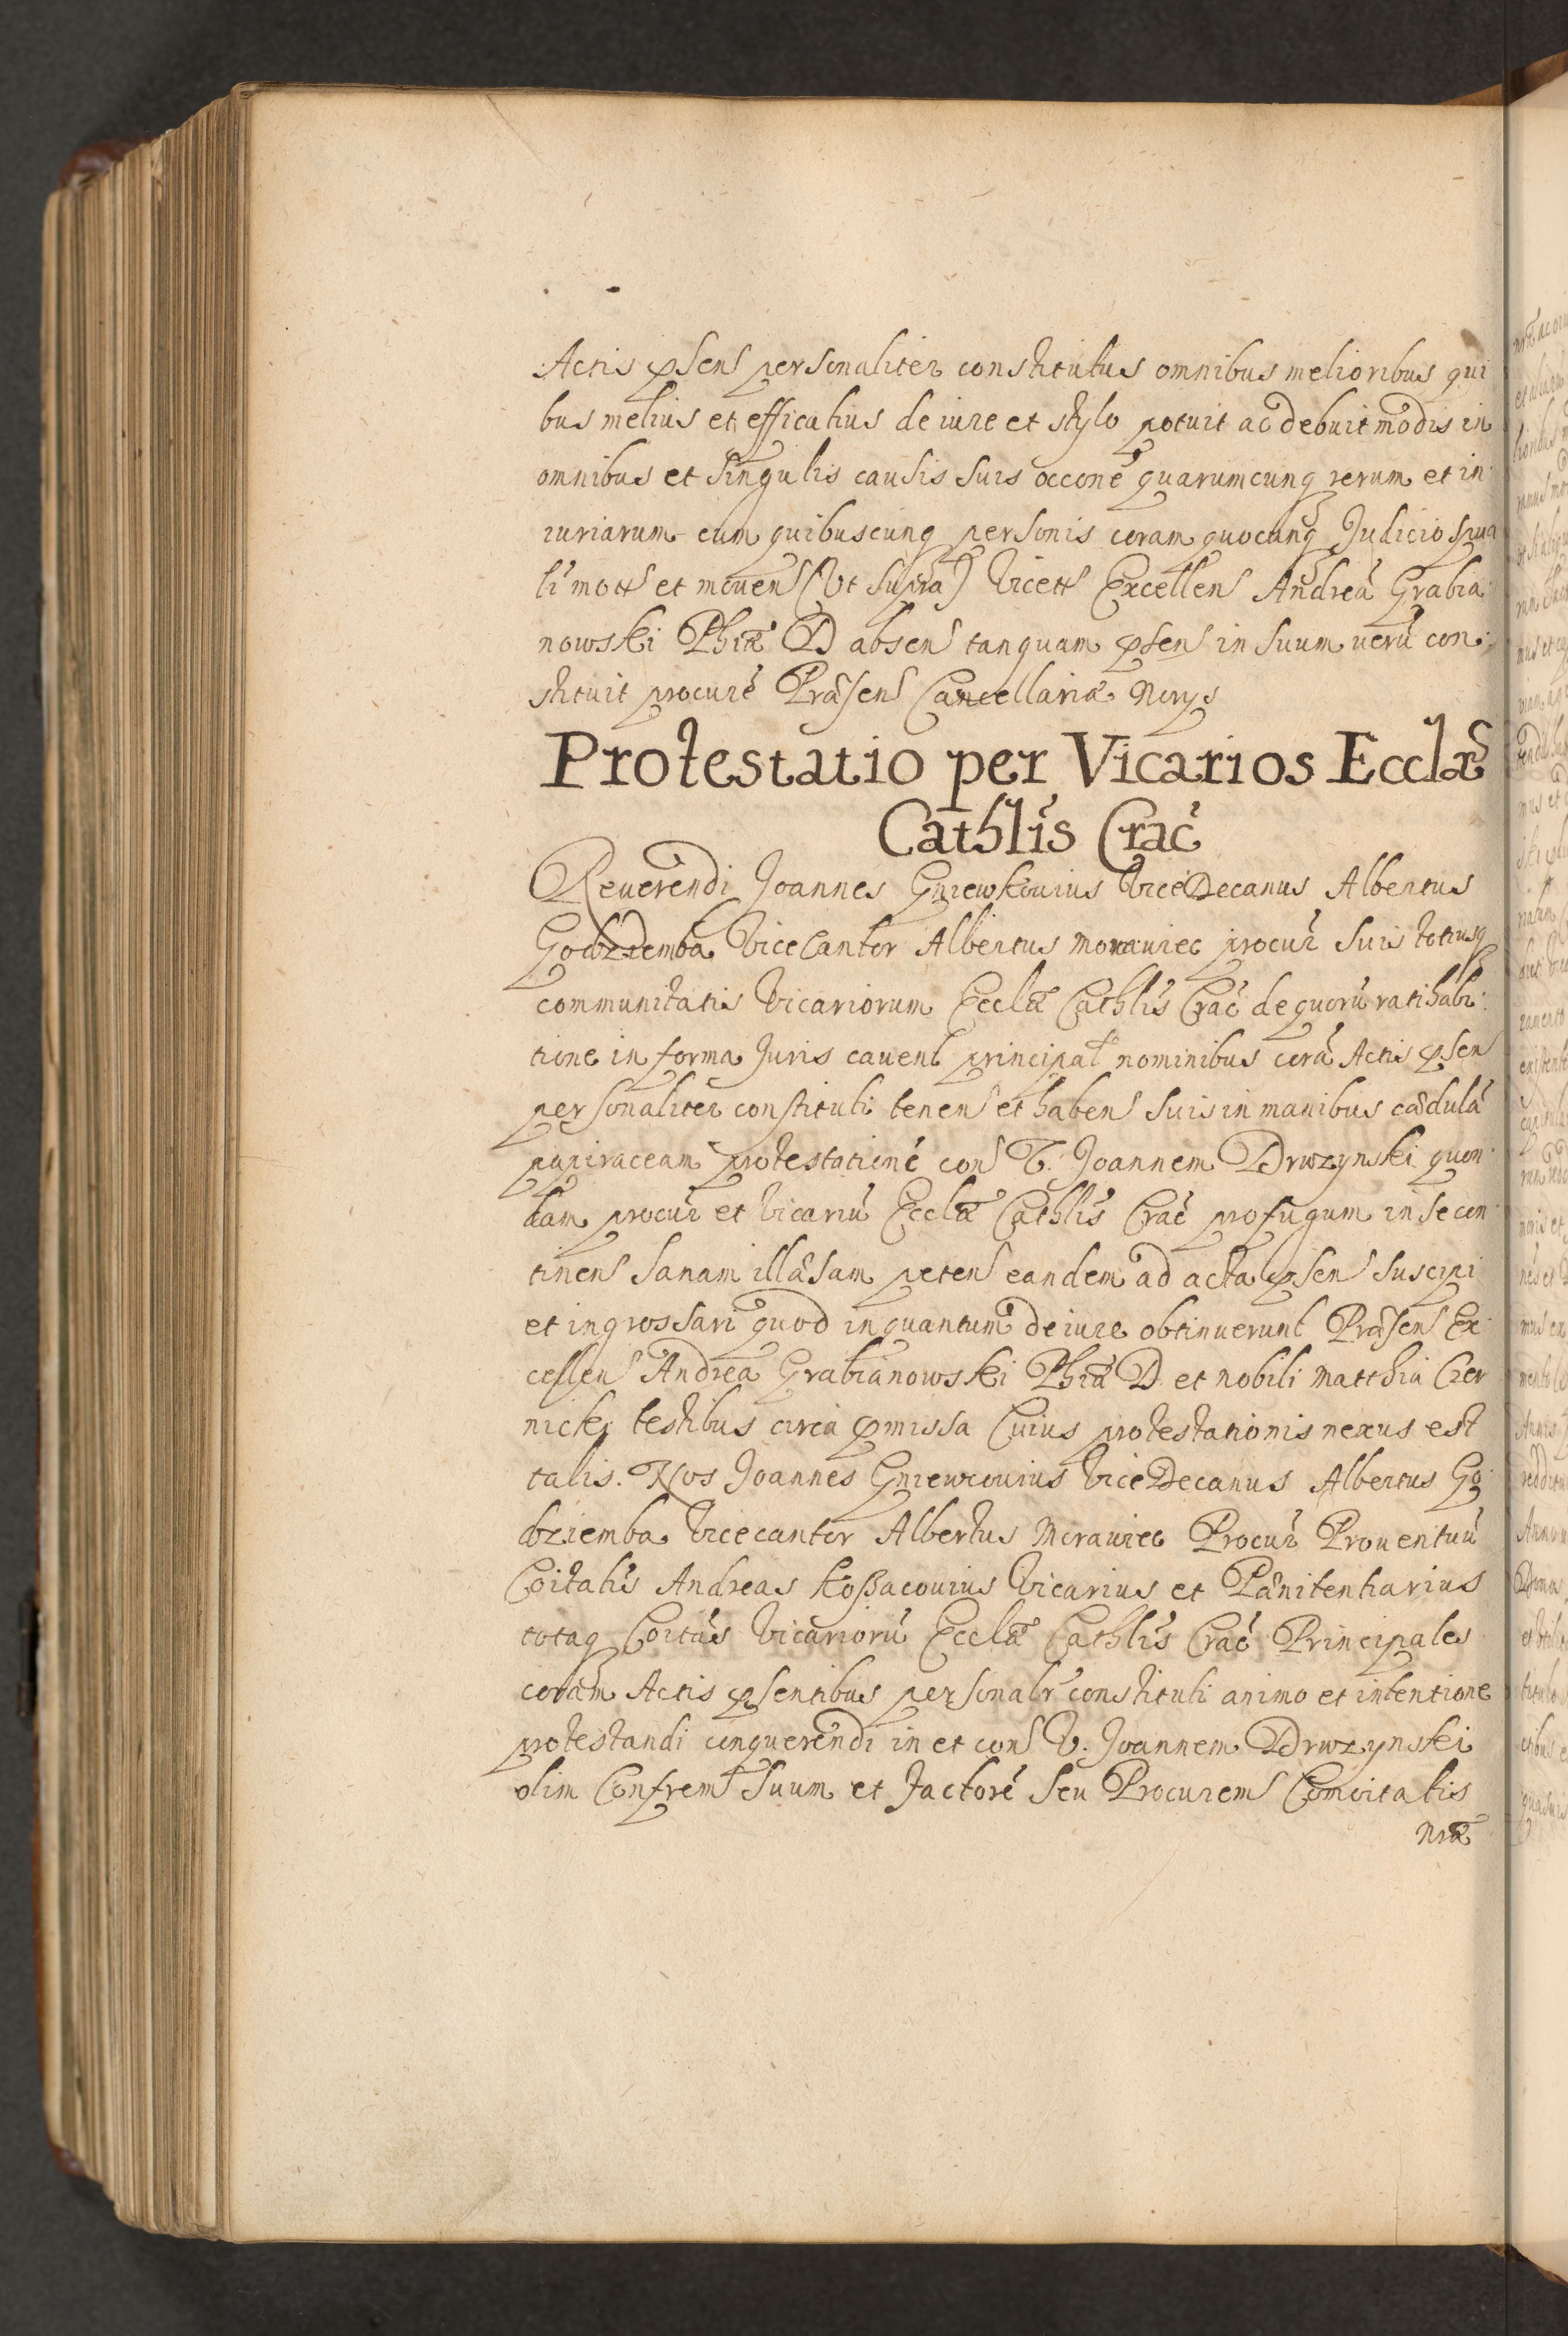 Actis pñsens personaliter constitutus omnibus melioribus qui
bus melius et efficatius de iure et stylo potuit ac debuit modis in
omnibus et singulis causis suis occone quarumcunq rerum et in:
iuriarum cum quibuscunq personis coram quocunq Judicio spua
li mott et mouen (Vt supra) Vicett Excellen Andreã Grabia:
nowski Phiæ D absen tanquam psen in suum uerũ con:
stituit procurẽ Præsen Cancellariæ Norys
Protestatio per Vicarios Ecclæ
Cathlis Crac
Reuerendi Joannes Gniewkouius ViceDecanus Albertus
Godziemba ViceCantor Albertus Morauiec procur suis totiusq
communitatis Vicariorum Ecclæ Cathlis Crac de quorũ ratihabi:
tione in forma Juris cauent principal nominibus corã Actis psen
personaliter constituti tenen et haben suis in manibus cædulã
papiraceam protestationẽ con V. Joannem Drwzynski quon:
dam procur et Vicariũ Ecclæ Cathlis Crac profugum in se con
tinen sanam illæsam peten eandem ad acta psen suscipi
et ingrossari quod inquantum de iure obtinuerunt Præsen Ex:
cellen Andrea Grabianowski Phiæ D et nobili Matthia Cier
nicki testibus circa pmissa Cuius protestationis nexus est
talis. Nos Joannes Gniewcouius ViceDecanus Albertus Go:
dziemba Vicecantor Albertus Morauiec Procur Prouentuũ
Coitatis Andreas Koßacouius Vicarius et Pænitentiarius
totaq Coitas Vicariorũ Ecclæ Cathlis Crac Principales
coram Actis psentibus personalr constituti animo et intentione
protestandi conquerendi in et con V. Joannem Drwzynski
olim Confrem suum et Factorẽ seu Procurem Comoitatis
Nræ